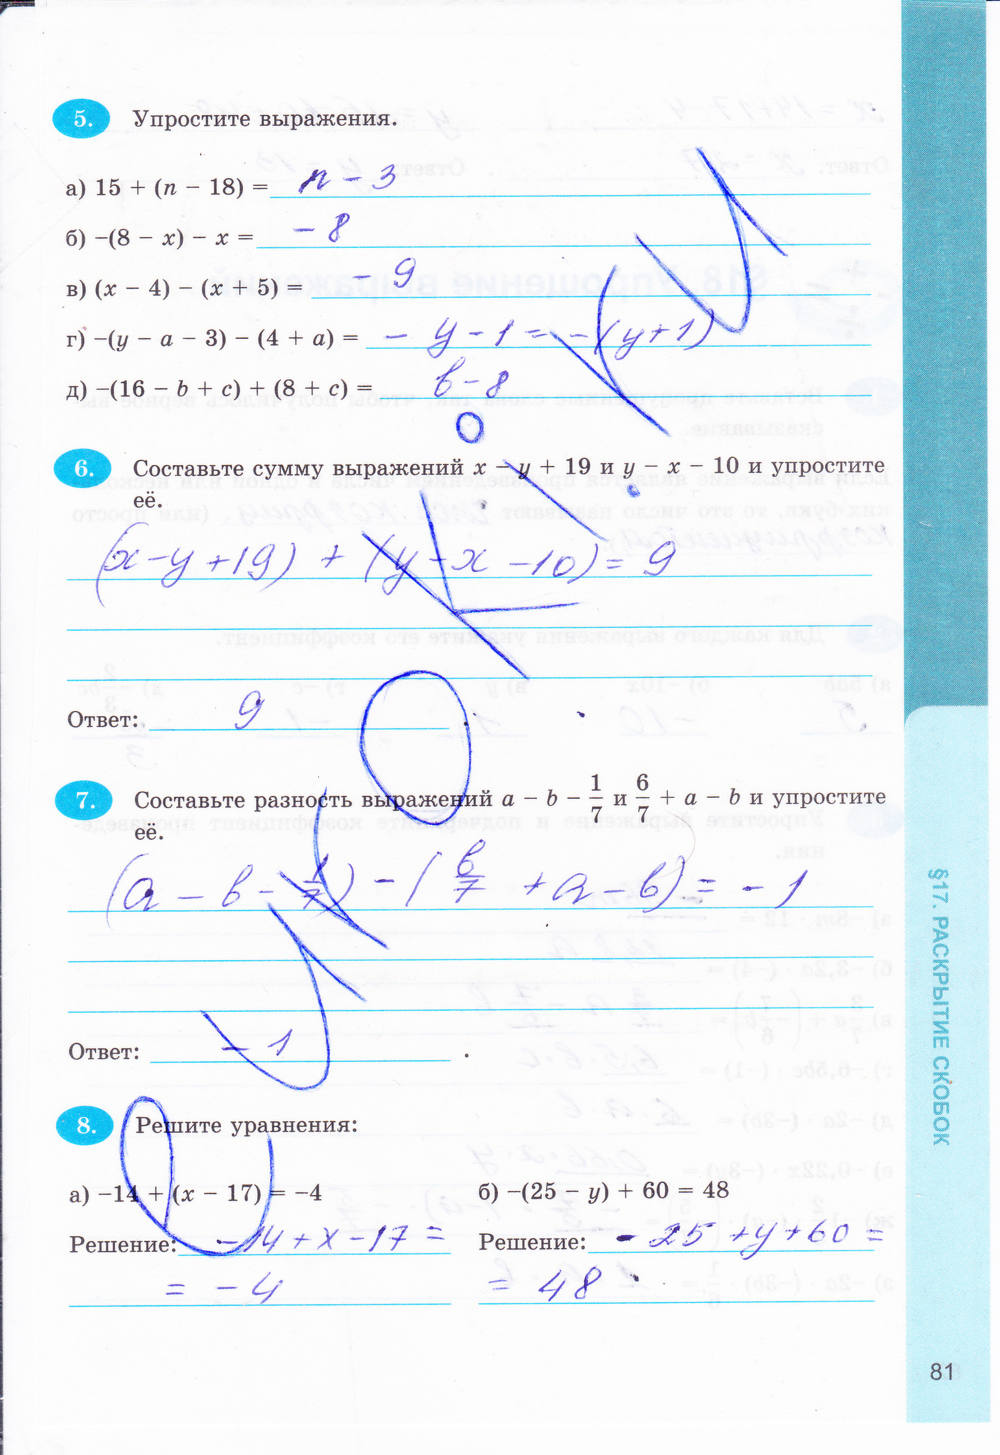 5. Упростите выражения.
а) 15 + (n − 18) = n − 3
б) −(8 − x) − x = − 8
в) (x − 4) − (x + 5) = − 9
г) −(y − a − 3) − (4 + a) = − y − 1 = −(y+1)
д) −(16 − b + c) + (8 + c) = b − 8
6. Составьте сумму выражений x − y + 19 и y − x − 10 и упростите
её.
(x − y + 19) + (y − x − 10) = 9
Ответ: 9 .
7. Составьте разность выражений a − b − 1/7 и 6/7 + a − b и упростите
её.
(a − b − 1/7) − (6/7 + a − b) = − 1
Ответ: − 1 .
8. Решите уравнения:
а) −14 + (x − 17) = −4 б) −(25 − y) + 60 = 48
Решение: −14 + x − 17 = Решение: − 25 + y + 60 =
= − 4 = 48
§17. РАСКРЫТИЕ СКОБОК
81